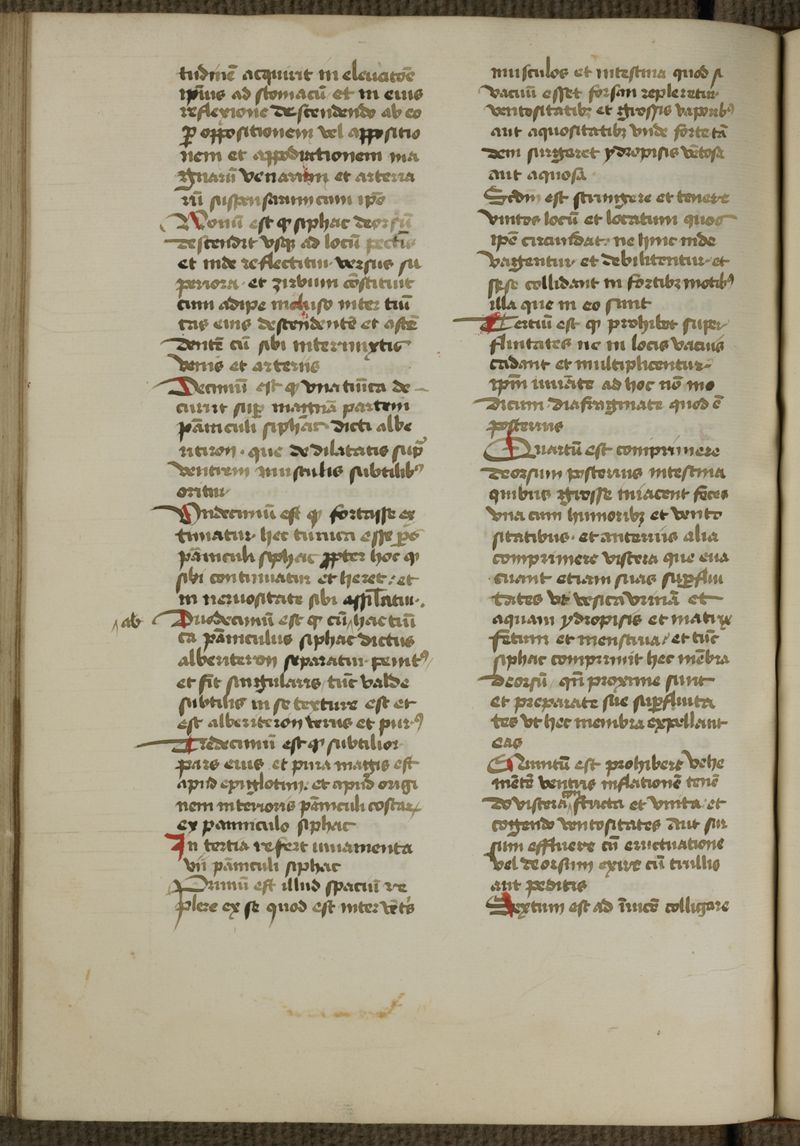 tudinē acquirit in eleuatōe
ipsius ad stomacū et in eius
reflexione descendendo ab eo
ꝑ oppositionem vel appositio
nem et approbationem ma
gnarū venarum et arteria
rū suspensarum cum ipō
Nonū est ꝙ siphac deorsū
descendit vsqꝫ ad locū pectīs
et inde reflectitur versus su
periora et zirbum cōstituit
cum adipe incluso inter tūi
cas eius descendentē et ascē
dentē cū sibi intermixtis
venis et arteriis
Decimū est ꝙ vna tūica de
currit suꝑ magnā partem
pāniculi siphac dicti albe
ritiron · que de dilatatis suꝑ
ventrem musculis subtilibꝰ
oritur
Vndecimū est ꝙ fortasse ex
timatur hec tunica esse ꝑs
pāniculi siphac ꝓpter hoc ꝙ
sibi continuatur et heret / et
in neruositate sibi assīlatur.
ab Duodecimū est ꝙ cū hac tūi
ca pāniculus siphac dictus
alberiteron separatur penitꝰ
et sit singularis tūc valde
subtilis in se texture est et
est alberiteron verus et purꝰ
Tredecimū est ꝙ subtilior
pars eius et pura magis est
apud epiglotim. et apud origi
nem interioris pāniculi costarꝝ
ex panniculo siphac
In tertia refert iuuamenta
vii pāniculi siphac
Primū est illud spaciū re
plere ex se quod est inter vētꝭ
musculos et intestina quod si
vacuū esset forsan repleretur
ventositatibꝫ et grossis vaporibꝰ
aut aquositatibꝫ vnde forte tā
dem surgeret ydropisis vētosa
aut aquosa
Scdm est stringere et tenere
vnitos locū et locatum quos
ipē circūdat. ne hinc inde
vagentur et debilitentur et
sese collidant in fortibꝫ motibꝰ
illa que in eo sunt
Tertiū est ꝙ prohibet super
fluitates ne in locis vacuis
cadant et multiplicentur
ipm iuuāte ad hoc nō mo
dicum diafragmate quod ē
posterius
Quartū est comprimere
deorsum posterius intestina
quibus grosse iniacent feces
vna cum humoribꝫ et vento
sitatibus · et anterius alia
comprimere viscera que eua
cuant etiam suas suꝑflui
tates vt vesica vrinā et
aquam ydropisis et matrix
fetum et menstrua / et tūc
siphac comprimit hec mēbra
deorsū qn̄ proxime sunt
et preparate sue suꝑfluita
tes vt hec membra expellant
eas
Quintū est prohibere vehe
mētē ventris inflationē tenē
do viscera stricta et vnita et
cogendo ventositates aut sur
sum effluere cū eructuatione
vel deorsum exire cū trullis
aut peditis
Sextum est ad īuicē colligare